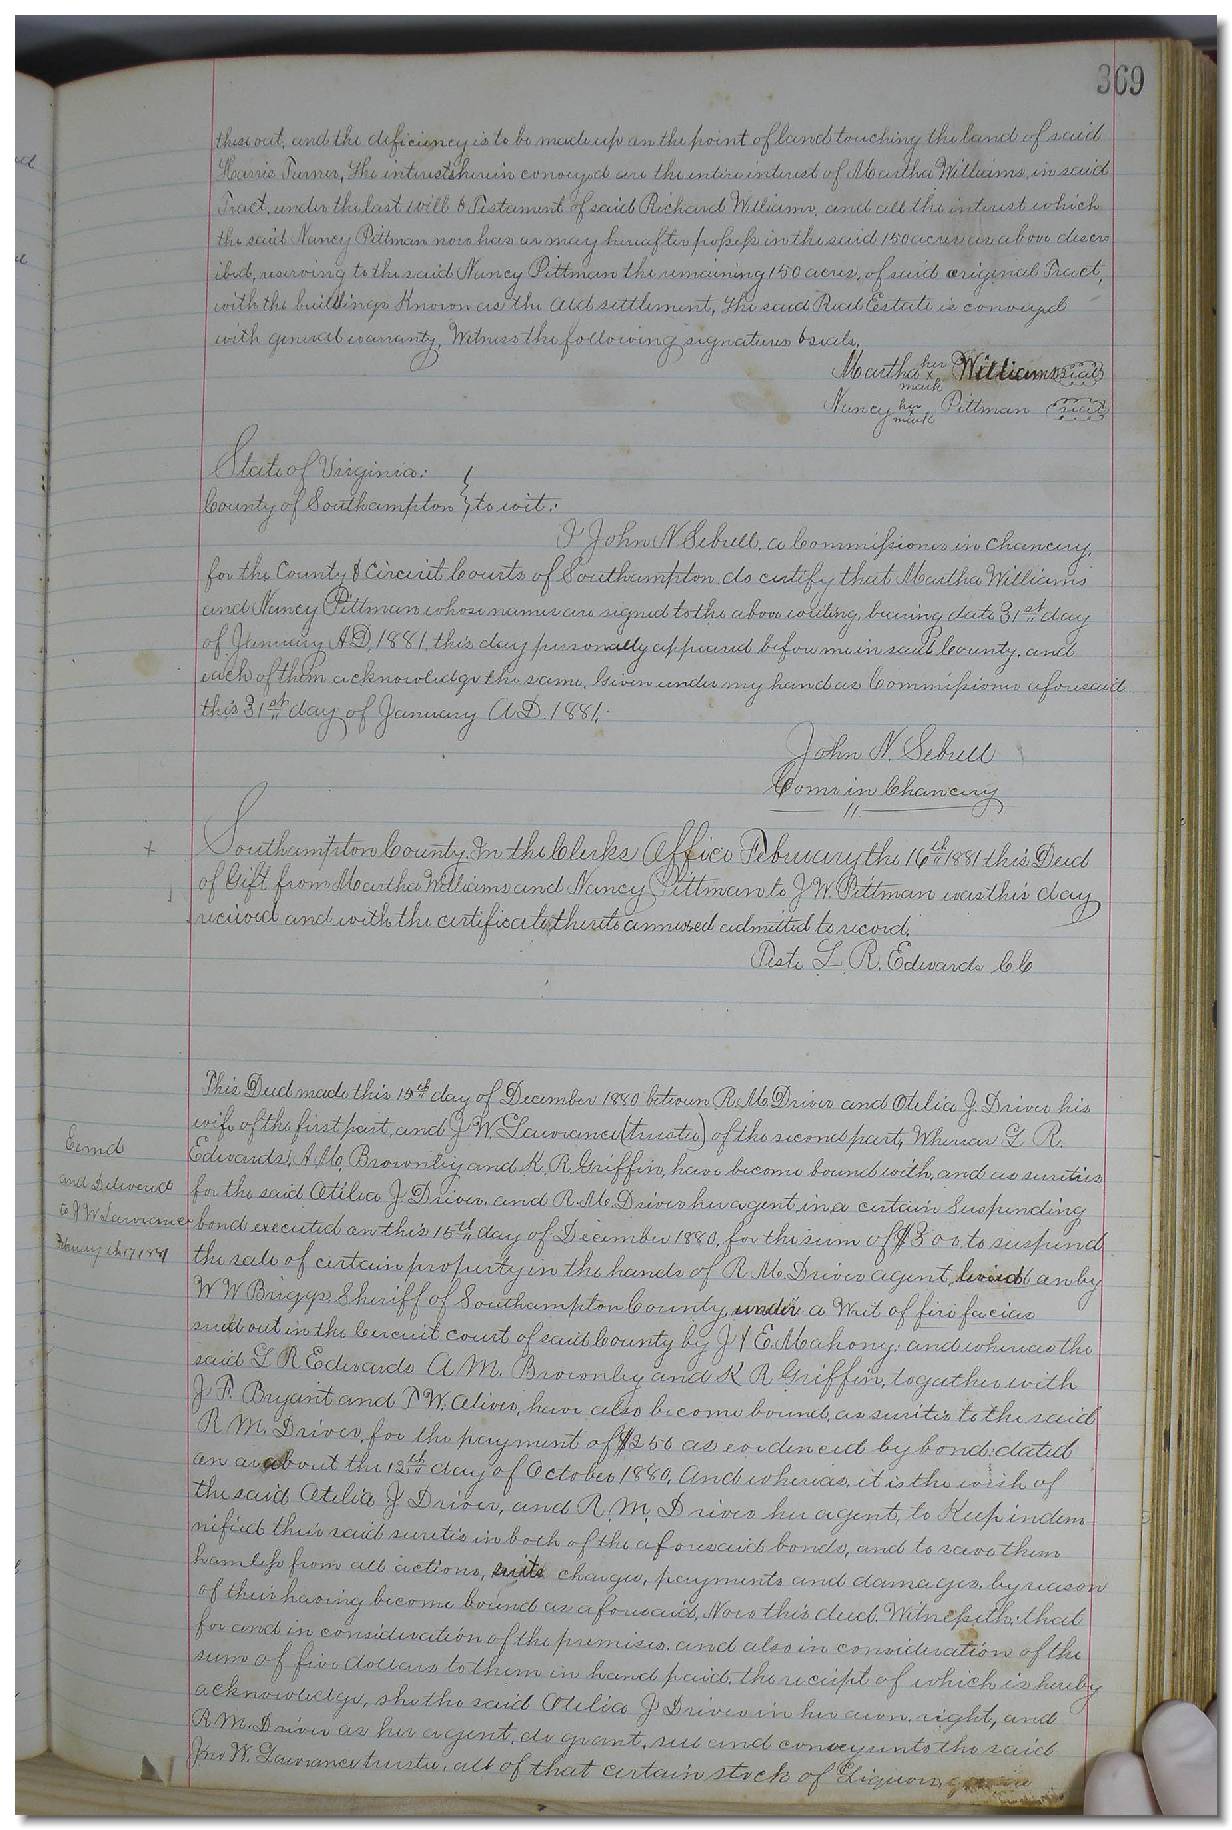 369
these out, and the deficiency is to be made up on the point of land touching the land of said
Harris Turner, The interest herein conveyed are the entire interest of Martha Williams, in said
Tract, under the last Will & Testament of said Richard Williams, and all the interest which
the said Nancy Pittman now has or may hereafter possess in the said 150 acres as above descr
ibed, reserving to the said Nancy Pittman the remaining 150 acres, of said original Tract,
with the buildings Known as the Old settlement, The said Real Estate is conveyed
with general warranty, Witness the following signatures & seals.
Martha her x mark Williams seal
Nancy her x mark Pittman seal
State of Virginia:
County of Southampton } to wit:
I John N Sebrell, a Commissioner in Chancery,
for the County & Circuit Courts of Southampton do certify that Martha Williams
and Nancy Pittman whose names are signed to the above writing, bearing date 31st day
of January A.D. 1881, this day personally appeared before me in said County, and
each of them acknowledge the same, Given under my hand as Commissioner aforesaid
this 31st day of January A.D. 1881.
John N. Sebrell
Comr in Chancery
Southampton County, In the Clerks Office February the 16th 1881 this Deed
of Gift from Martha Williams and Nancy Pittman to J W. Pittman was this day
received and with the certificate thereto annexed admitted to record.
Teste L R. Edwards CC
This Deed made this 15th day of December 1880 between R. M. Driver and Otelia J. Driver his
wife of the first part, and J W. Lawrance (trustee) of the second part, Whereas L R.
Edwards, A M. Brownley and K. R. Griffin, have become bound with, and as sureties
for the said Otelia J Driver, and R. M. Driver her agent in a certain Suspending
bond executed on this 15th day of December 1880, for the sum of $800. to suspend
the sale of certain property in the hands of R. M. Driver agent, levied on by
W W Briggs, Sheriff of Southampton County, under a Writ of fire facias
sued out in the Circuit court of said County by J & E. Mahony, and whereas the
said L R Edwards A M. Brownley and K R Griffin, together with
J F. Bryant and T W. Oliver, have also become bound, as sureties to the said
R M. Driver, for the payment of $250 as evidenced by bond dated
on or about the 12th day of October 1880, And whereas, it is the wish of
the said Otelia J Driver, and R. M. Driver her agent, to Keep indem
nified their said sureties in both of the aforesaid bonds, and to save them
harmless from all actions, suits charges, payments and damages, by reason
of their having become bound as aforesaid, Now this deed Witnesseth: that
for and in consideration of the premises, and also in consideration of the
sum of five dollars to them in hand paid, the receipt of which is hereby
acknowledge, she the said Otelia J Driver in her own right, and
R. M. Driver as her agent, do grant, sell and convey unto the said
Jno W. Lawrance trustee, all of that certain stock of Liquors,
Exmd
and Delivered
to J W Lawrance